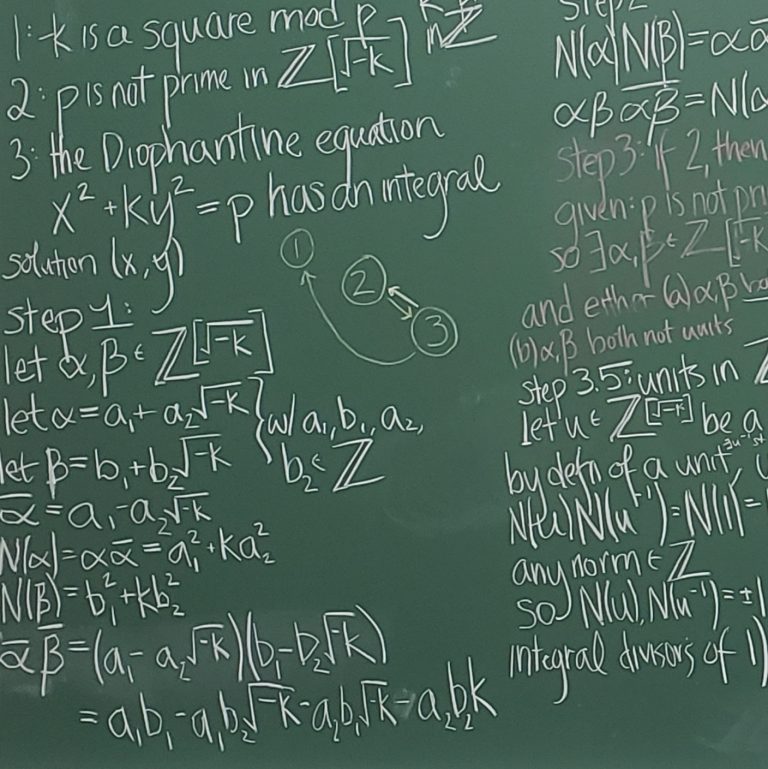 1: k is a square mod p
2: p is not prime in ℤ[√-k]
in ℤ
3: the Diophantine equation
x² + ky² = p has an integral
solution (x, y)
1
2
3
step 1:
let α, β ∈ ℤ[√-k]
let α = a₁ + a₂√-k } w/ a₁, b₁, a₂,
let β = b₁ + b₂√-k } b₂ ∈ ℤ
α̅ = a₁ - a₂√-k
N(α) = αα̅ = a₁² + ka₂²
N(β) = b₁² + kb₂²
α̅ β̅ = (a₁ - a₂√-k)(b₁ - b₂√-k)
= a₁b₁ - a₁b₂√-k - a₂b₁√-k - a₂b₂k
Step 2
N(α)N(β) = αα̅
αβ α̅β̅ = N(α
step 3: if 2, then
given: p is not pri
so ∃α, β ∈ ℤ[√-k
and either (a) α, β
(b) α, β both not units
step 3.5: units in ℤ
let u ∈ ℤ[√-k] be a
∃u⁻¹ st
by defn of a unit,
N(u)N(u⁻¹) = N(1) =
any norm ∈ ℤ
so N(u), N(u⁻¹) = ±1
integral divisors of 1)